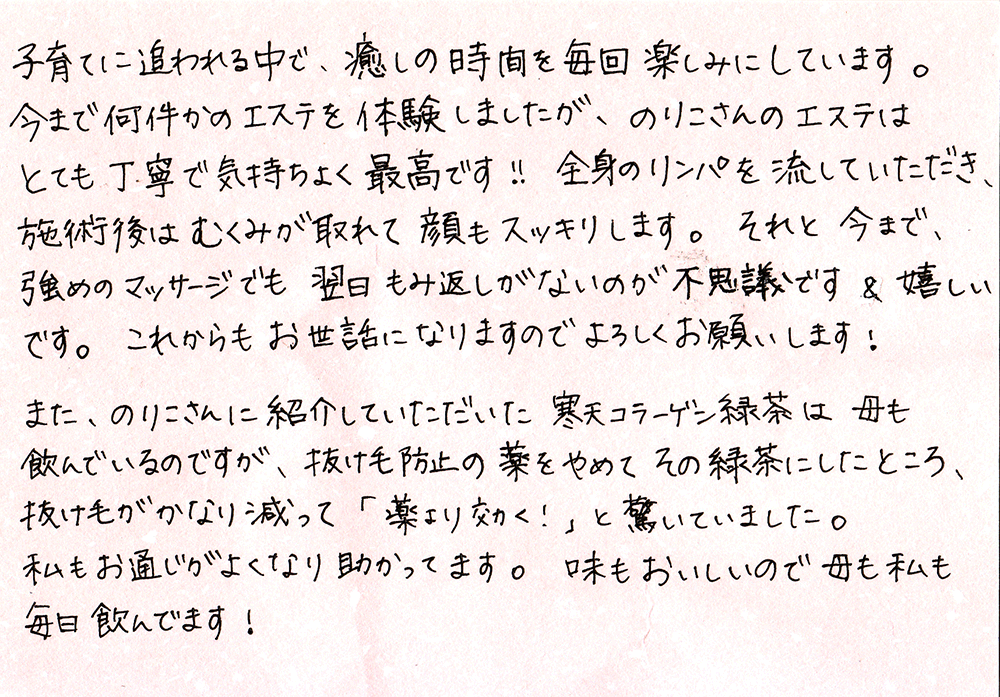 子育てに追われる中で、癒しの時間を毎回楽しみにしています。
今まで何件かのエステを体験しましたが、のりこさんのエステは
とても丁寧で気持ちよく最高です!! 全身のリンパを流していただき、
施術後はむくみが取れて顔もスッキリします。 それと今まで、
強めのマッサージでも翌日もみ返しがないのが不思議です & 嬉しい
です。 これからもお世話になりますのでよろしくお願いします!
また、のりこさんに紹介していただいた寒天コラーゲン緑茶は母も
飲んでいるのですが、抜け毛防止の薬をやめてその緑茶にしたところ、
抜け毛がかなり減って「薬より効く!」と驚いていました。
私もお通じがよくなり助かってます。 味もおいしいので母も私も
毎日飲んでます!